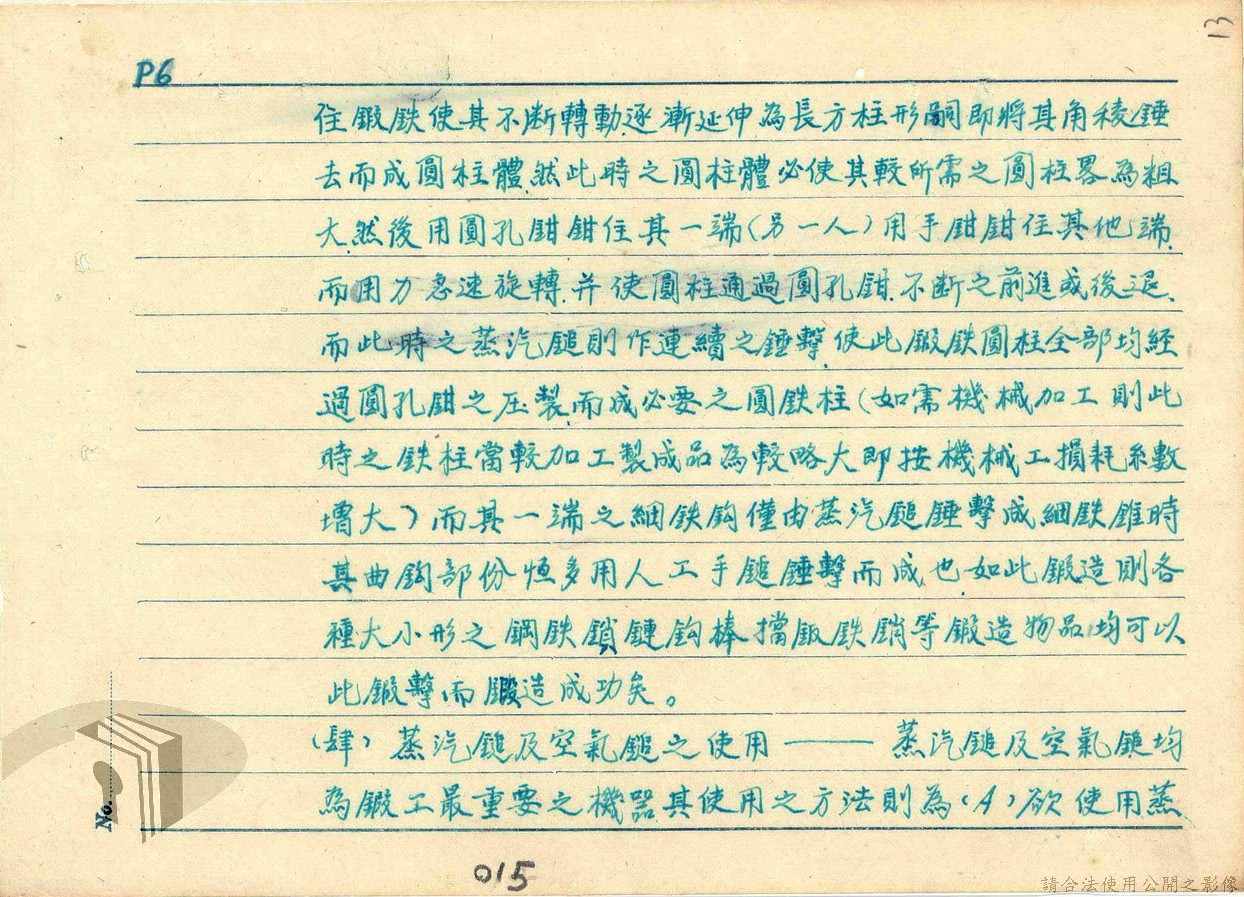 13
P6
住鍛鉄使其不断轉動逐漸延伸為長方柱形嗣即將其角稜錘
去而成圓柱體.然此時之圓柱體必使其較所需之圓柱畧為粗
大.然後用圓孔鉗鉗住其一端(另一人)用手鉗鉗住其他端.
而用力急速旋轉.并使圓柱通過圓孔鉗.不断之前進或後退、
而此時之蒸汽鎚則作連續之錘擊.使此鍛鉄圓柱全部均經
過圓孔鉗之压製.而成必要之圓鉄柱(如需機械加工則此
時之鉄柱當較加工製成品為較略大即按機械工損耗系數
增大)而其一端之細鉄鈎僅由蒸汽鎚錘擊成細鉄錐時
其曲鈎部份恒多用人工手鎚錘擊而成.也.如此鍛造則各
種大小形之鋼鉄鎖鏈鈎棒擋鈑鉄銷等鍛造物品均可以
此鍛擊而鍛造成功矣。
(肆)蒸汽鎚及空氣鎚之使用——蒸汽鎚及空氣鎚均
為鍛工最重要之機器其使用之方法則為(A)欲使用蒸
No.
015
請合法使用公開之影像